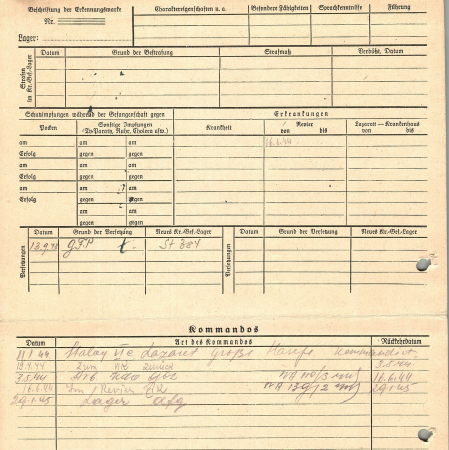 Beschriftung der Erkennungsmarke Charaktereigenschaften u. a. Besondere Fähigkeiten Sprachkenntnisse Führung
Nr.
Lager:
Strafen im Kr.-Gef.-Lager Datum Grund der Bestrafung Strafmaß Verbüßt, Datum
Schutzimpfungen während der Gefangenschaft gegen Erkrankungen
Pocken Sonstige Impfungen (Ty-Paraty, Ruhr, Cholera usw.) Krankheit Revier von bis Lazarett — Krankenhaus von bis
am am am 16.6.44
Erfolg gegen gegen
am am am
Erfolg gegen gegen
am am am
Erfolg gegen gegen
am am
gegen gegen
Versetzungen Datum Grund der Versetzung Neues Kr.-Gef.-Lager Versetzungen Datum Grund der Versetzung Neues Kr.-Gef.-Lager
St 384
Kommandos
Datum Art des Kommandos Rückkehrdatum
11.1.44 Stalag VI c Lazaret große
zurück 3.5.44
3.5.44 16.6.44
16.6.44 Im Revier 29.1.45
29.1.45 Lager